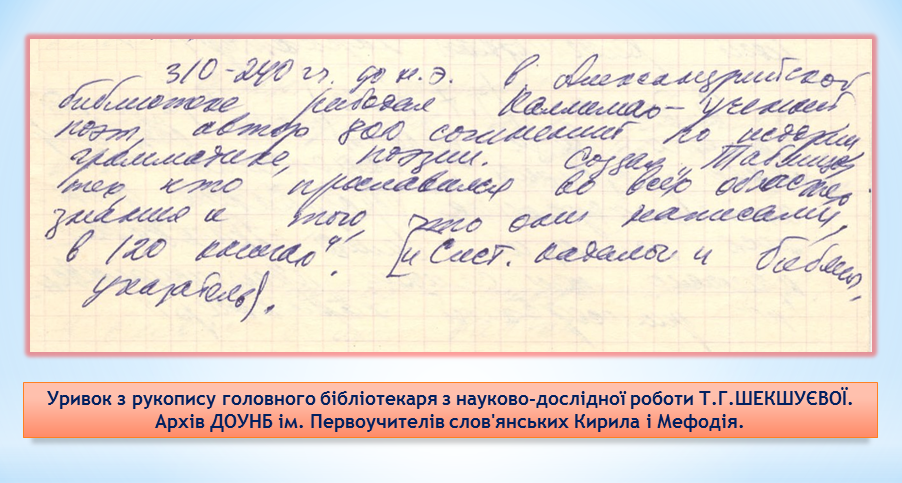 310-240 гг. до н.э. в Александрийской
библиотеке работал Каллимах - ученый
поэт, автор 800 сочинений по истории,
грамматике, поэзии. Создал „Таблицы
тех, кто прославился во всех областях
знания и того, что они написали,
в 120 книгах". [и Сист. каталог и библиогр.
указатель].
Уривок з рукопису головного бібліотекаря з науково-дослідної роботи Т.Г.ШЕКШУЄВОЇ.
Архів ДОУНБ ім. Первоучителів слов'янських Кирила і Мефодія.